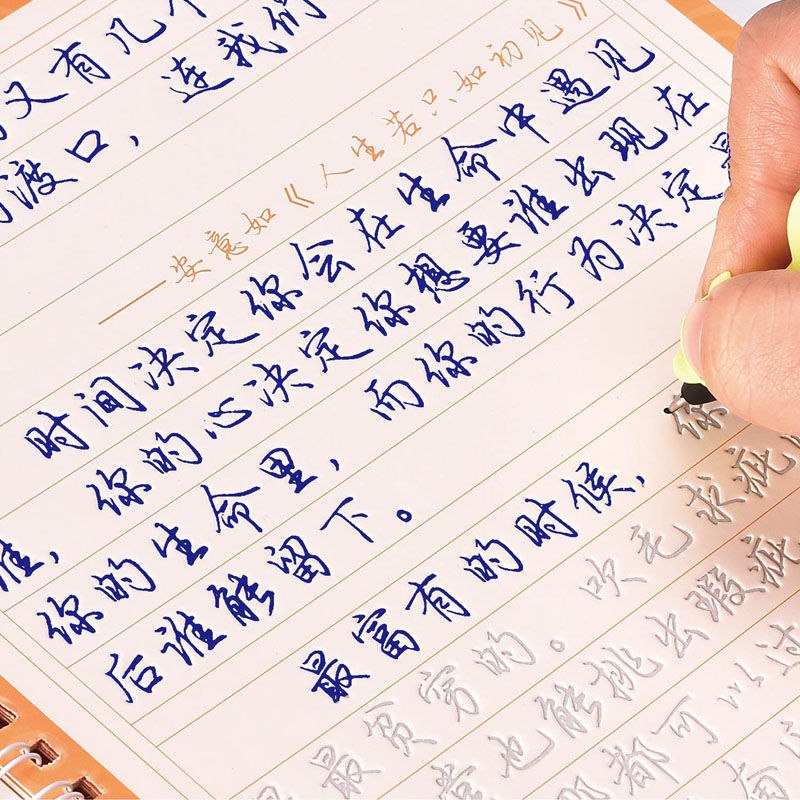 又有几个
渡口，连我们
——安意如《人生若只如初见》
时间决定你会在生命中遇见
谁，你的心决定你想要谁出现在
你的生命里，而你的行为决定最
后谁能留下。
最富有的时候，你
最贫穷的。吹毛求疵
堂也能挑出瑕疵
都可以过